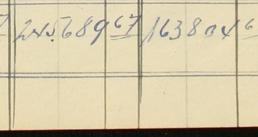 245689 67 163804 6